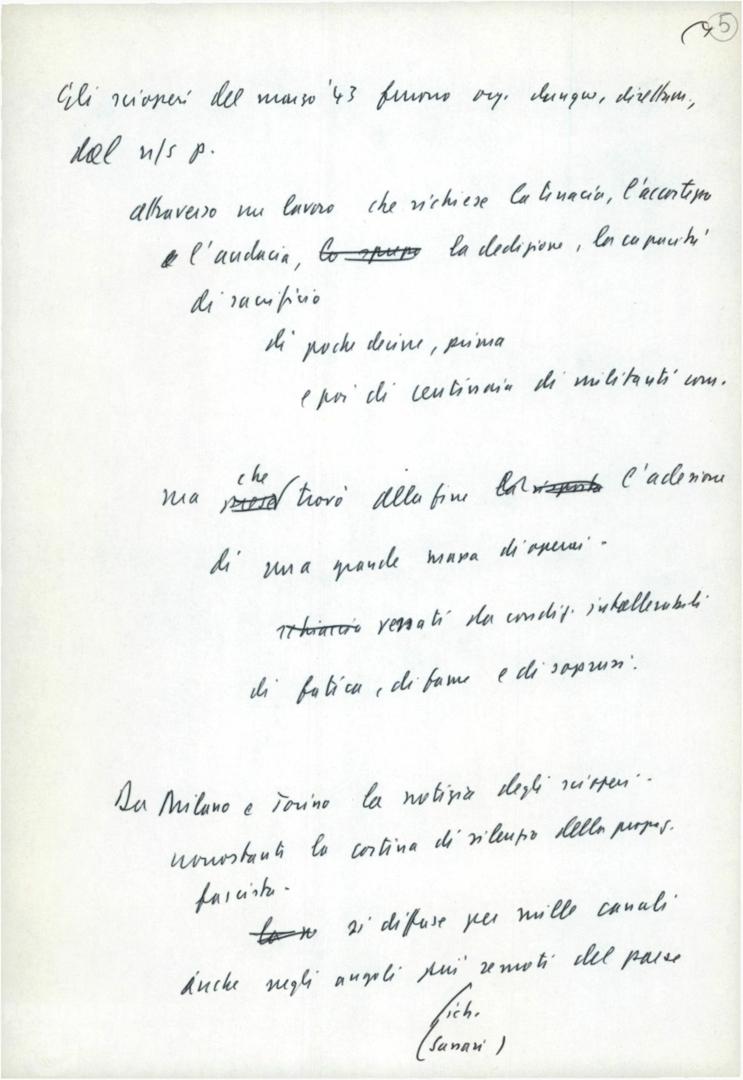 5
Gli scioperi del marzo '43 furono org. dunque, direttam.,
dal n/s p.
attraverso un lavoro che richiese la tenacia, l'accortezza
e l'audacia, lo la dedizione, la capacità
di sacrificio
di poche decine, prima
e poi di centinaia di militanti com.
che
ma trovò alla fine la risposta l'adesione
di una grande massa di operai -
schiaccia vessati da condiz. intollerabili
di fatica, di fame e di soprusi.
Da Milano e Torino la notizia degli scioperi -
nonostante la cortina di silenzio della propag.
fascista -
si diffuse per mille canali
anche negli angoli più remoti del paese
(ich.
Sassari)